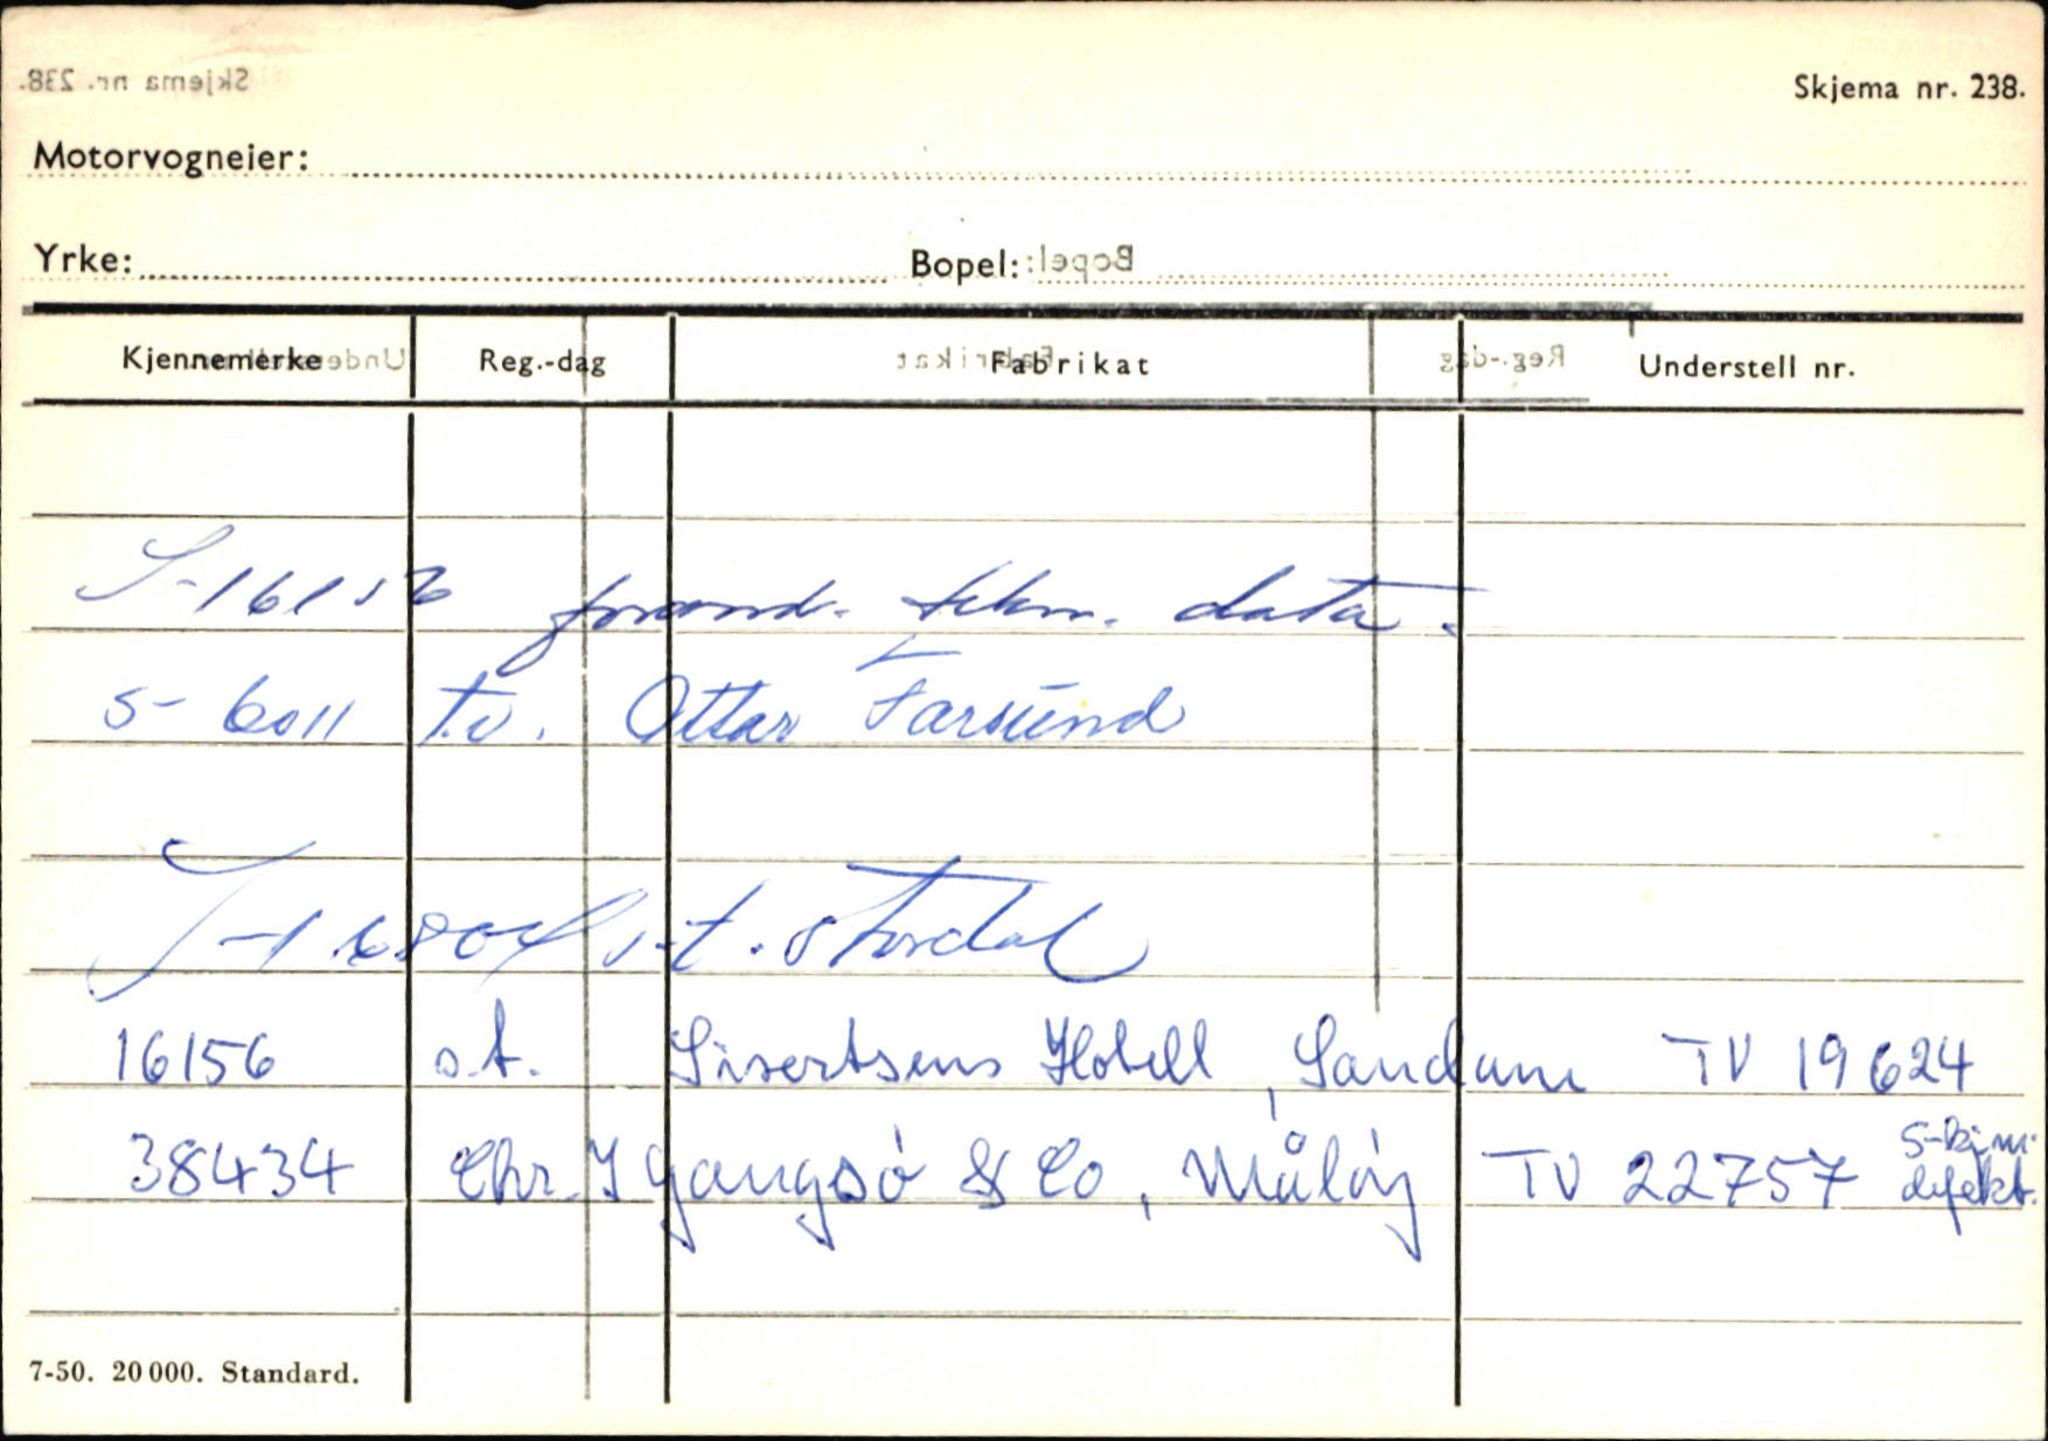 Skjema nr. 238.
Motorvogneier:
Yrke: Bopel:
Kjennemerke Reg.-dag Fabrikat Understell nr.
S-16156 forand. tekn. data.
S-6011 t.v. Ottar Farsund
s.t. Stordal
16156 s.t. Sivertsens Hotell, Sandane TV 19624
38434 Chr. Ygangsö & Co, Måløy TV 22757 S-kj.m. defekt.
7-50. 20 000. Standard.